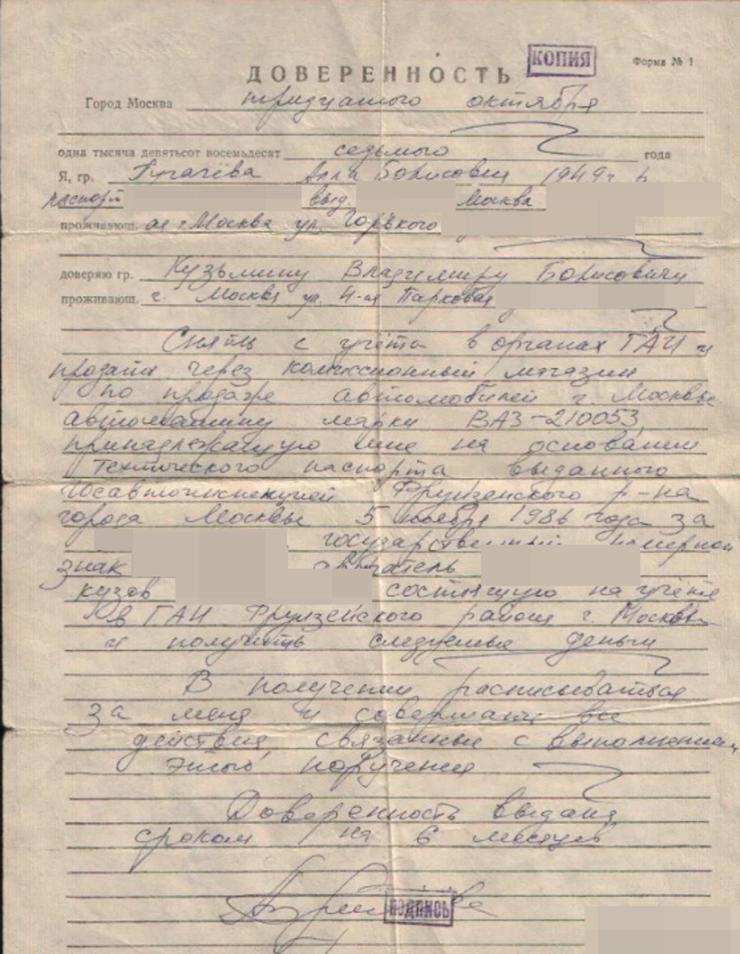 КОПИЯ
Форма № 1
ДОВЕРЕННОСТЬ
Город Москва тридцатого октября
одна тысяча девятьсот восемьдесят седьмого года
Я, гр. Пугачева Алла Борисовна 1949 г р
паспорт выд. Москва
проживающ. ая г. Москва ул. Горького
доверяю гр. Кузьмину Владимиру Борисовичу
проживающ. г. Москва ул. 4-ая Парковая
Снять с учёта в органах ГАИ и
продать через комиссионный магазин
по продаже автомобилей г. Москвы
автомашину марки ВАЗ-210053,
принадлежащую мне на основании
технического паспорта выданного
Госавтоинспекцией Фрунзенского р-на
города Москвы 5 ноября 1986 года за
государственный номерной
знак двигатель
кузов состоящую на учёте
в ГАИ Фрунзенского района г. Москвы
и получить следуемые деньги
В получении расписываться
за меня и совершать все
действия, связанные с выполнением
этого поручения
Доверенность выдана
сроком на 6 месяцев
ПОДПИСЬ